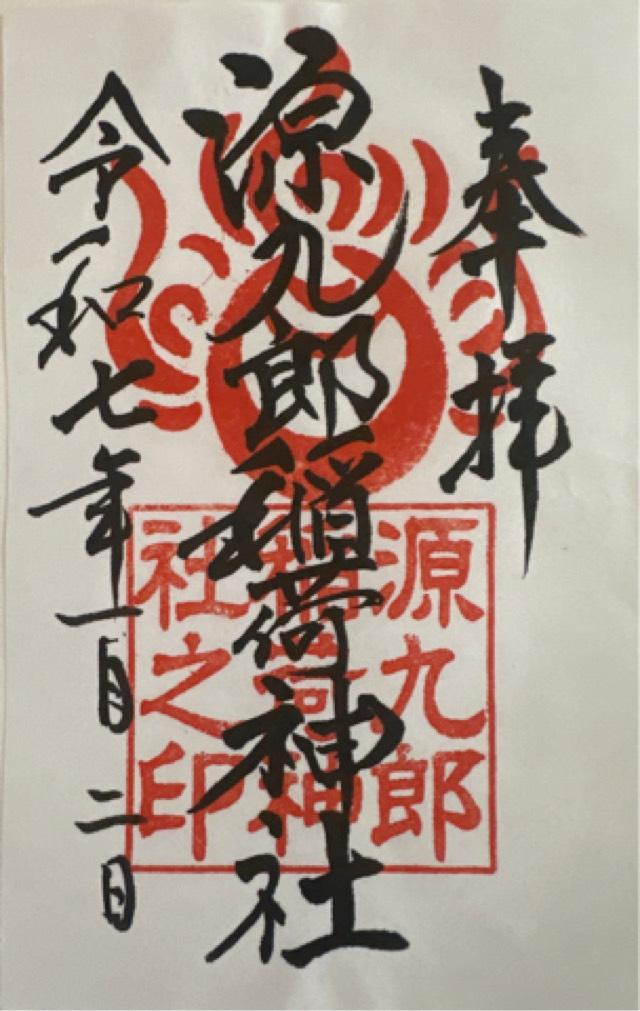 奉拝
源九郎稲荷神社
令和七年一月二日
源九郎
稲荷神
社之印